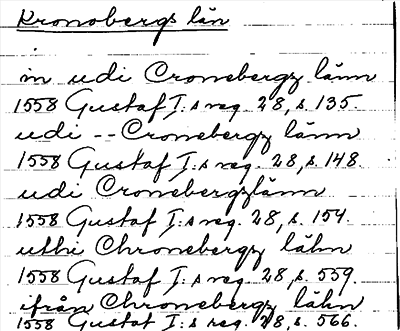 Kronobergs län
in udi Cronebergz länn
1558 Gustaf I:s reg. 28, s. 135.
udi -- Cronebergz länn
1558 Gustaf I:s reg. 28, s. 148.
udi Cronebergzlänn
1558 Gustaf I:s reg. 28, s. 154.
uthi Chronebergz lähn
1558 Gustaf I:s reg. 28, s. 559.
ifrån Chronebergz lähn
1558 Gustaf I:s reg. 28, s. 566.